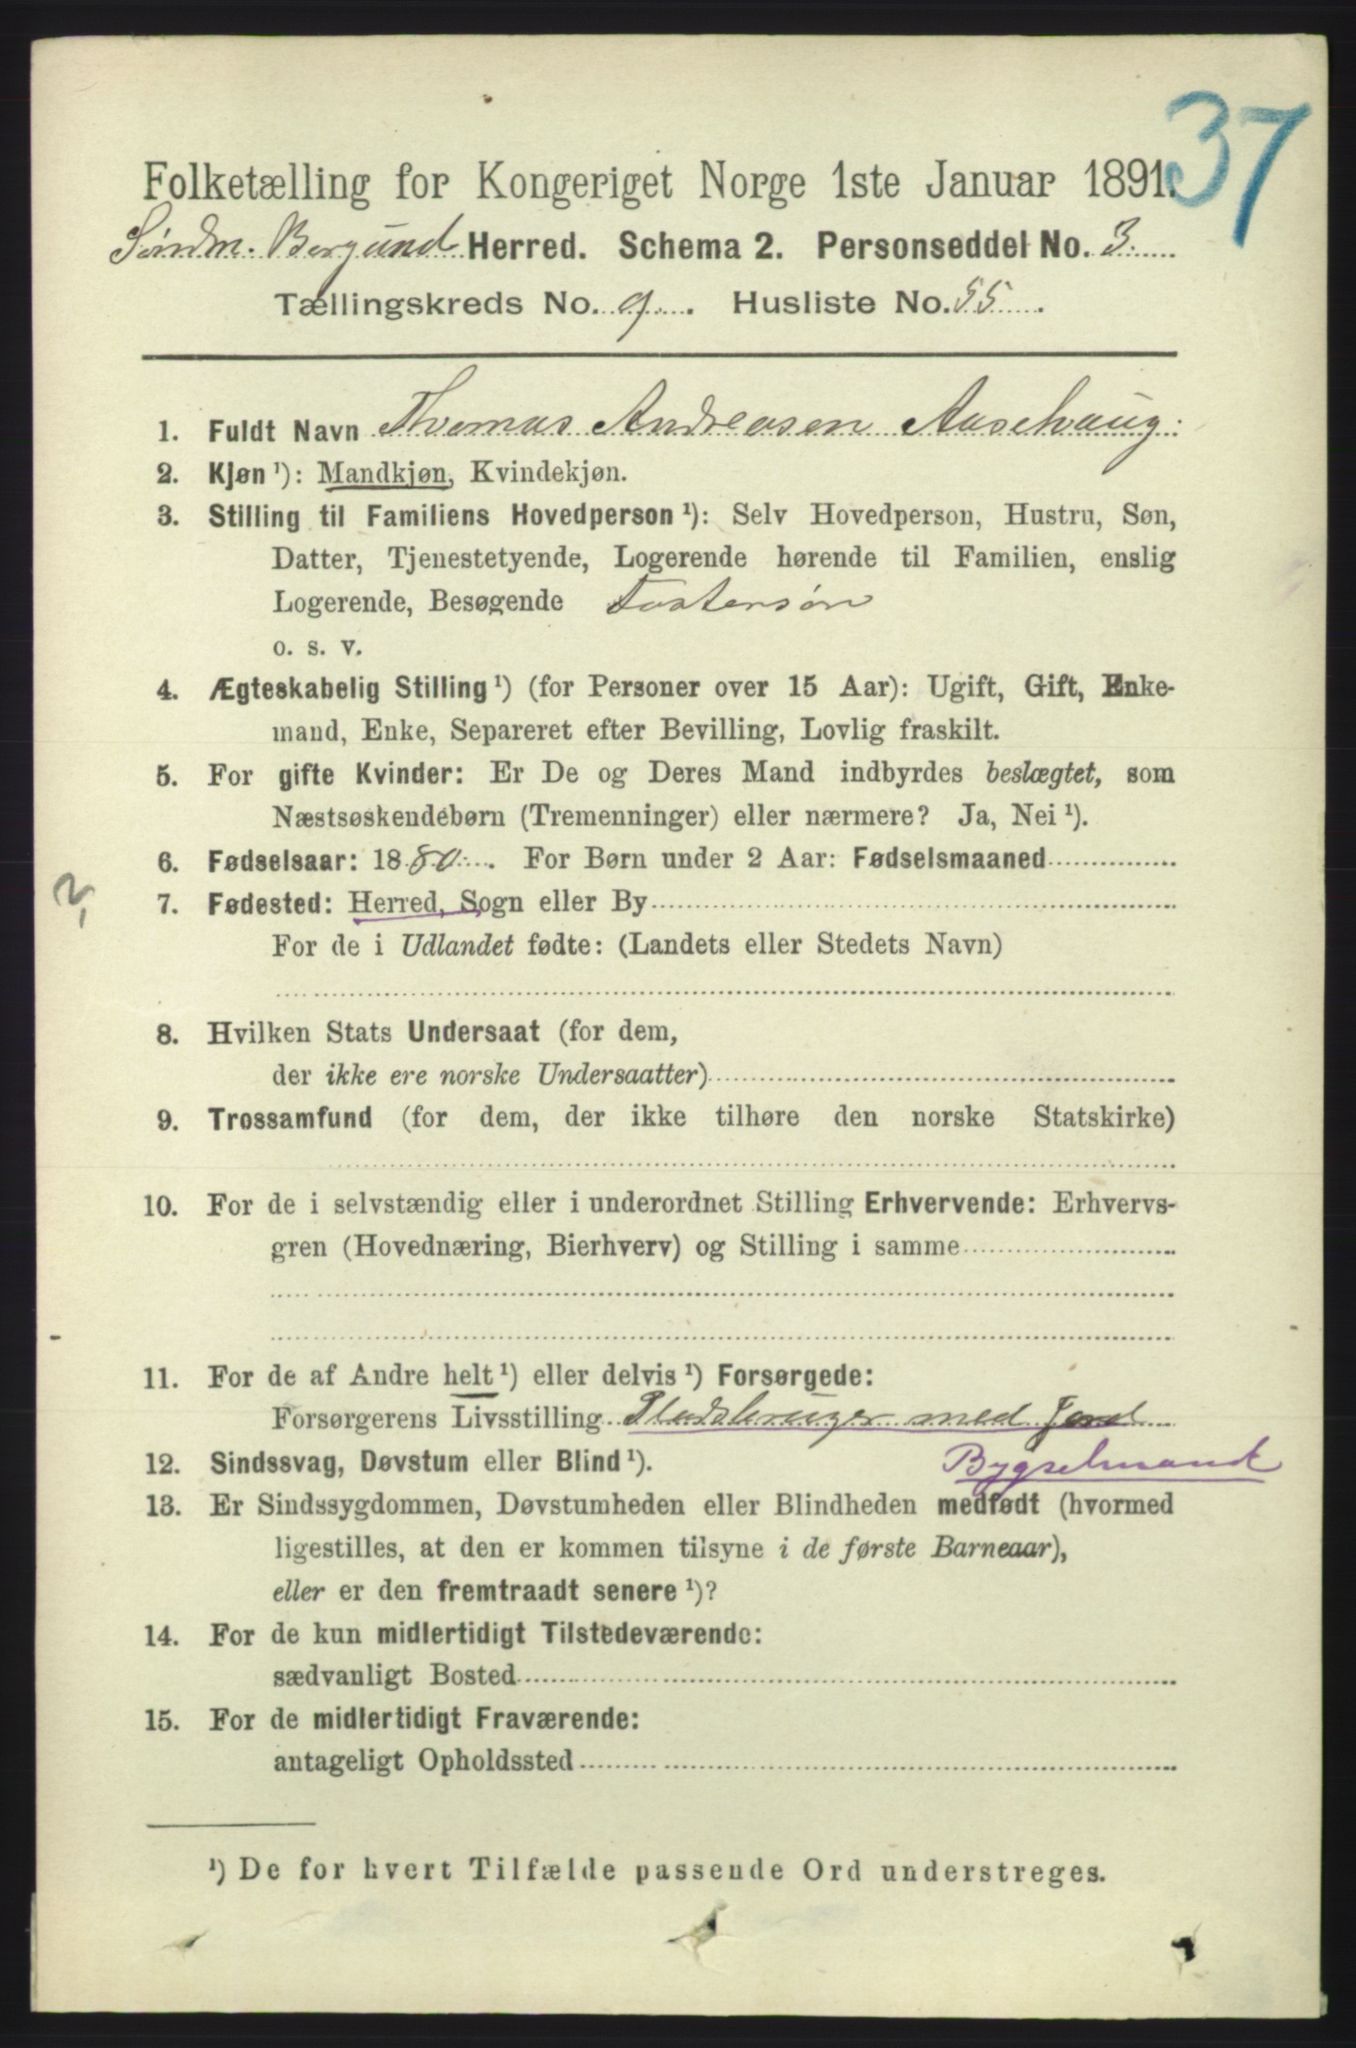 37
Folketælling for Kongeriget Norge 1ste Januar 1891.
Søndm. Borgund Herred. Schema 2. Personseddel No. 3
Tællingskreds No. 9. Husliste No. 55.
1. Fuldt Navn Thomas Andreasen Aasehaug
2. Kjøn ¹): Mandkjøn, Kvindekjøn.
3. Stilling til Familiens Hovedperson ¹): Selv Hovedperson, Hustru, Søn,
Datter, Tjenestetyende, Logerende hørende til Familien, enslig
Logerende, Besøgende Fostersøn
o. s. v.
4. Ægteskabelig Stilling ¹) (for Personer over 15 Aar): Ugift, Gift, Enke-
mand, Enke, Separeret efter Bevilling, Lovlig fraskilt.
5. For gifte Kvinder: Er De og Deres Mand indbyrdes beslægtet, som
Næstsøskendebørn (Tremenninger) eller nærmere? Ja, Nei ¹).
6. Fødselsaar: 1880. For Børn under 2 Aar: Fødselsmaaned
7. Fødested: Herred, Sogn eller By
For de i Udlandet fødte: (Landets eller Stedets Navn)
8. Hvilken Stats Undersaat (for dem,
der ikke ere norske Undersaatter)
9. Trossamfund (for dem, der ikke tilhøre den norske Statskirke)
10. For de i selvstændig eller i underordnet Stilling Erhvervende: Erhvervs-
gren (Hovednæring, Bierhverv) og Stilling i samme
11. For de af Andre helt ¹) eller delvis ¹) Forsørgede:
Forsørgerens Livsstilling Pladsbruger med Jord
Bygselmand
12. Sindssvag, Døvstum eller Blind ¹).
13. Er Sindssygdommen, Døvstumheden eller Blindheden medfødt (hvormed
ligestilles, at den er kommen tilsyne i de første Barneaar),
eller er den fremtraadt senere ¹)?
14. For de kun midlertidigt Tilstedeværende:
sædvanligt Bosted
15. For de midlertidigt Fraværende:
antageligt Opholdssted
¹) De for hvert Tilfælde passende Ord understreges.